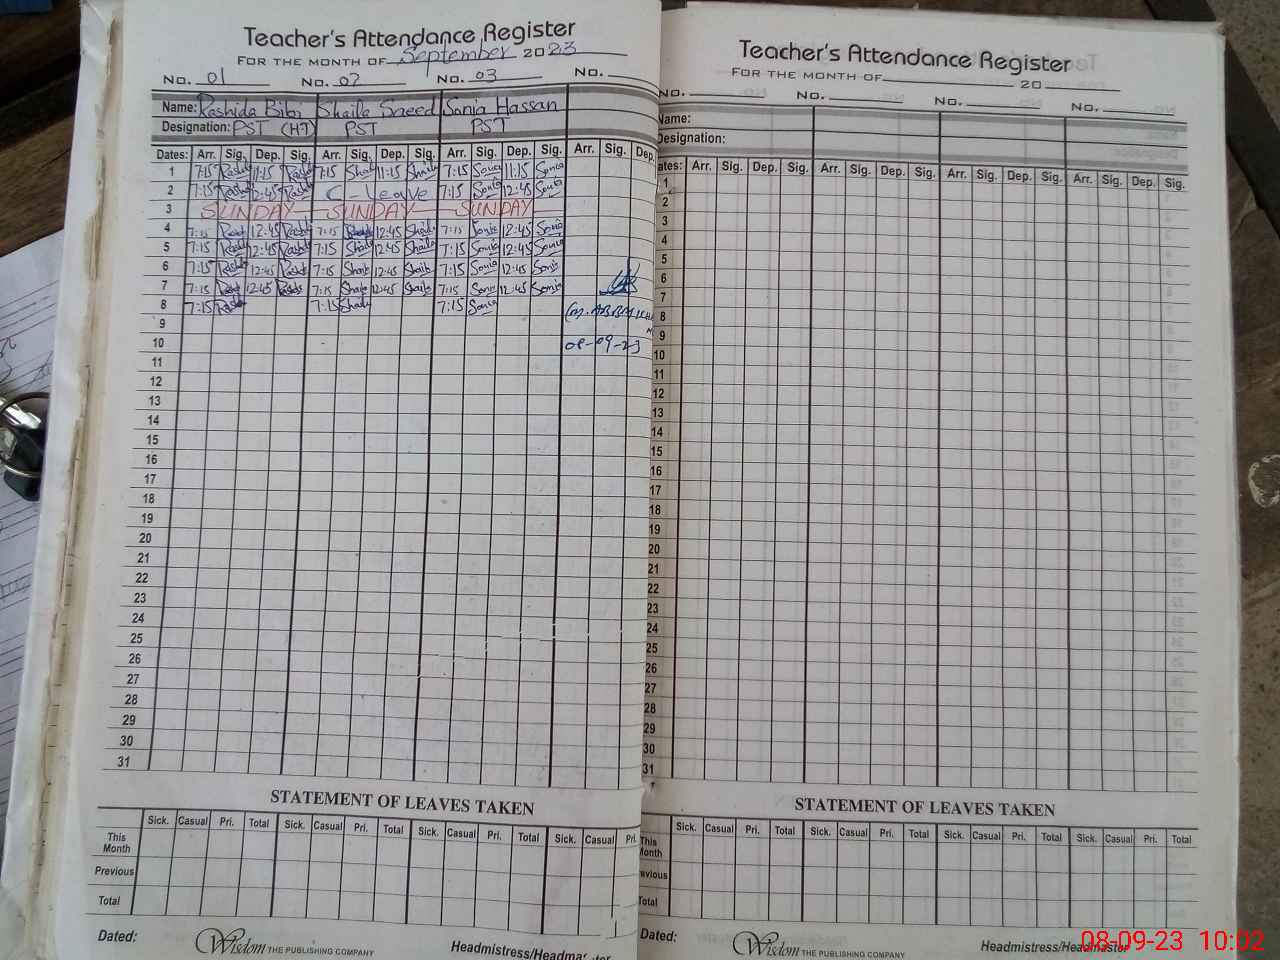 Teacher's Attendance Register
FOR THE MONTH OF September 2023
No. 01 No. 02 No. 03 No.
Name: Rashida Bibi Shaila Saeed Sonia Hassan
Designation: PST (HT) PST PST
Dates: Arr. Sig. Dep. Sig. Arr. Sig. Dep. Sig. Arr. Sig. Dep. Sig. Arr. Sig. Dep.
1 7:15 Rashda 11:15 Rashda 7:15 Shaila 11:15 Shaila 7:15 Sonia 11:15 Sonia
2 7:15 Rashda 12:45 Rashda C-Leave 7:15 Sonia 12:45 Sonia
3 SUNDAY SUNDAY SUNDAY
4 7:15 12:45 7:15 12:45 Shaila 7:15 Sonia 12:45 Sonia
5 7:15 12:45 7:15 Shaila 12:45 Shaila 7:15 Sonia 12:45 Sonia
6 7:15 12:45 7:15 Shaila 12:45 Shaila 7:15 Sonia 12:45 Sonia
7 7:15 12:45 7:15 Shaila 12:45 Shaila 7:15 Sonia 12:45 Sonia
8 7:15 7:15 Shaila 7:15 Sonia
9
10 08-09-23
11
12
13
14
15
16
17
18
19
20
21
22
23
24
25
26
27
28
29
30
31
STATEMENT OF LEAVES TAKEN
Sick. Casual Pri. Total Sick. Casual Pri. Total Sick. Casual Pri. Total Sick. Casual Pri.
This Month
Previous
Total
Dated: Wisdom THE PUBLISHING COMPANY Headmistress/Headmaster
Teacher's Attendance Register
FOR THE MONTH OF 20
No. No. No. No.
Name:
Designation:
Dates: Arr. Sig. Dep. Sig. Arr. Sig. Dep. Sig. Arr. Sig. Dep. Sig. Arr. Sig. Dep. Sig.
1
2
3
4
5
6
7
8
9
10
11
12
13
14
15
16
17
18
19
20
21
22
23
24
25
26
27
28
29
30
31
STATEMENT OF LEAVES TAKEN
Sick. Casual Pri. Total Sick. Casual Pri. Total Sick. Casual Pri. Total Sick. Casual Pri. Total
This Month
Previous
Total
Dated: Wisdom THE PUBLISHING COMPANY Headmistress/Headmaster
08-09-23 10:02